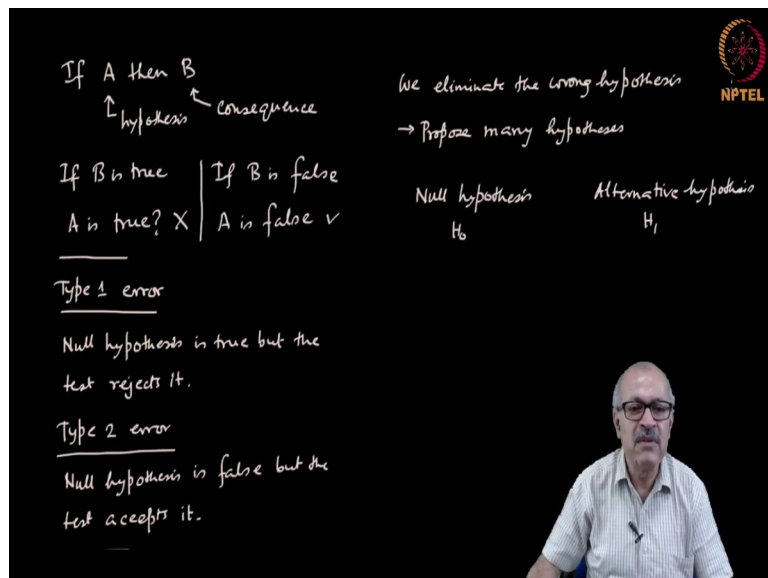 If A then B
hypothesis
consequence
If B is true
A is true? X
If B is false
A is false ✓
Type 1 error
Null hypothesis is true but the
test rejects it.
Type 2 error
Null hypothesis is false but the
test accepts it.
We eliminate the wrong hypothesis
→ Propose many hypotheses
Null hypothesis
H₀
Alternative hypothesis
H₁
NPTEL